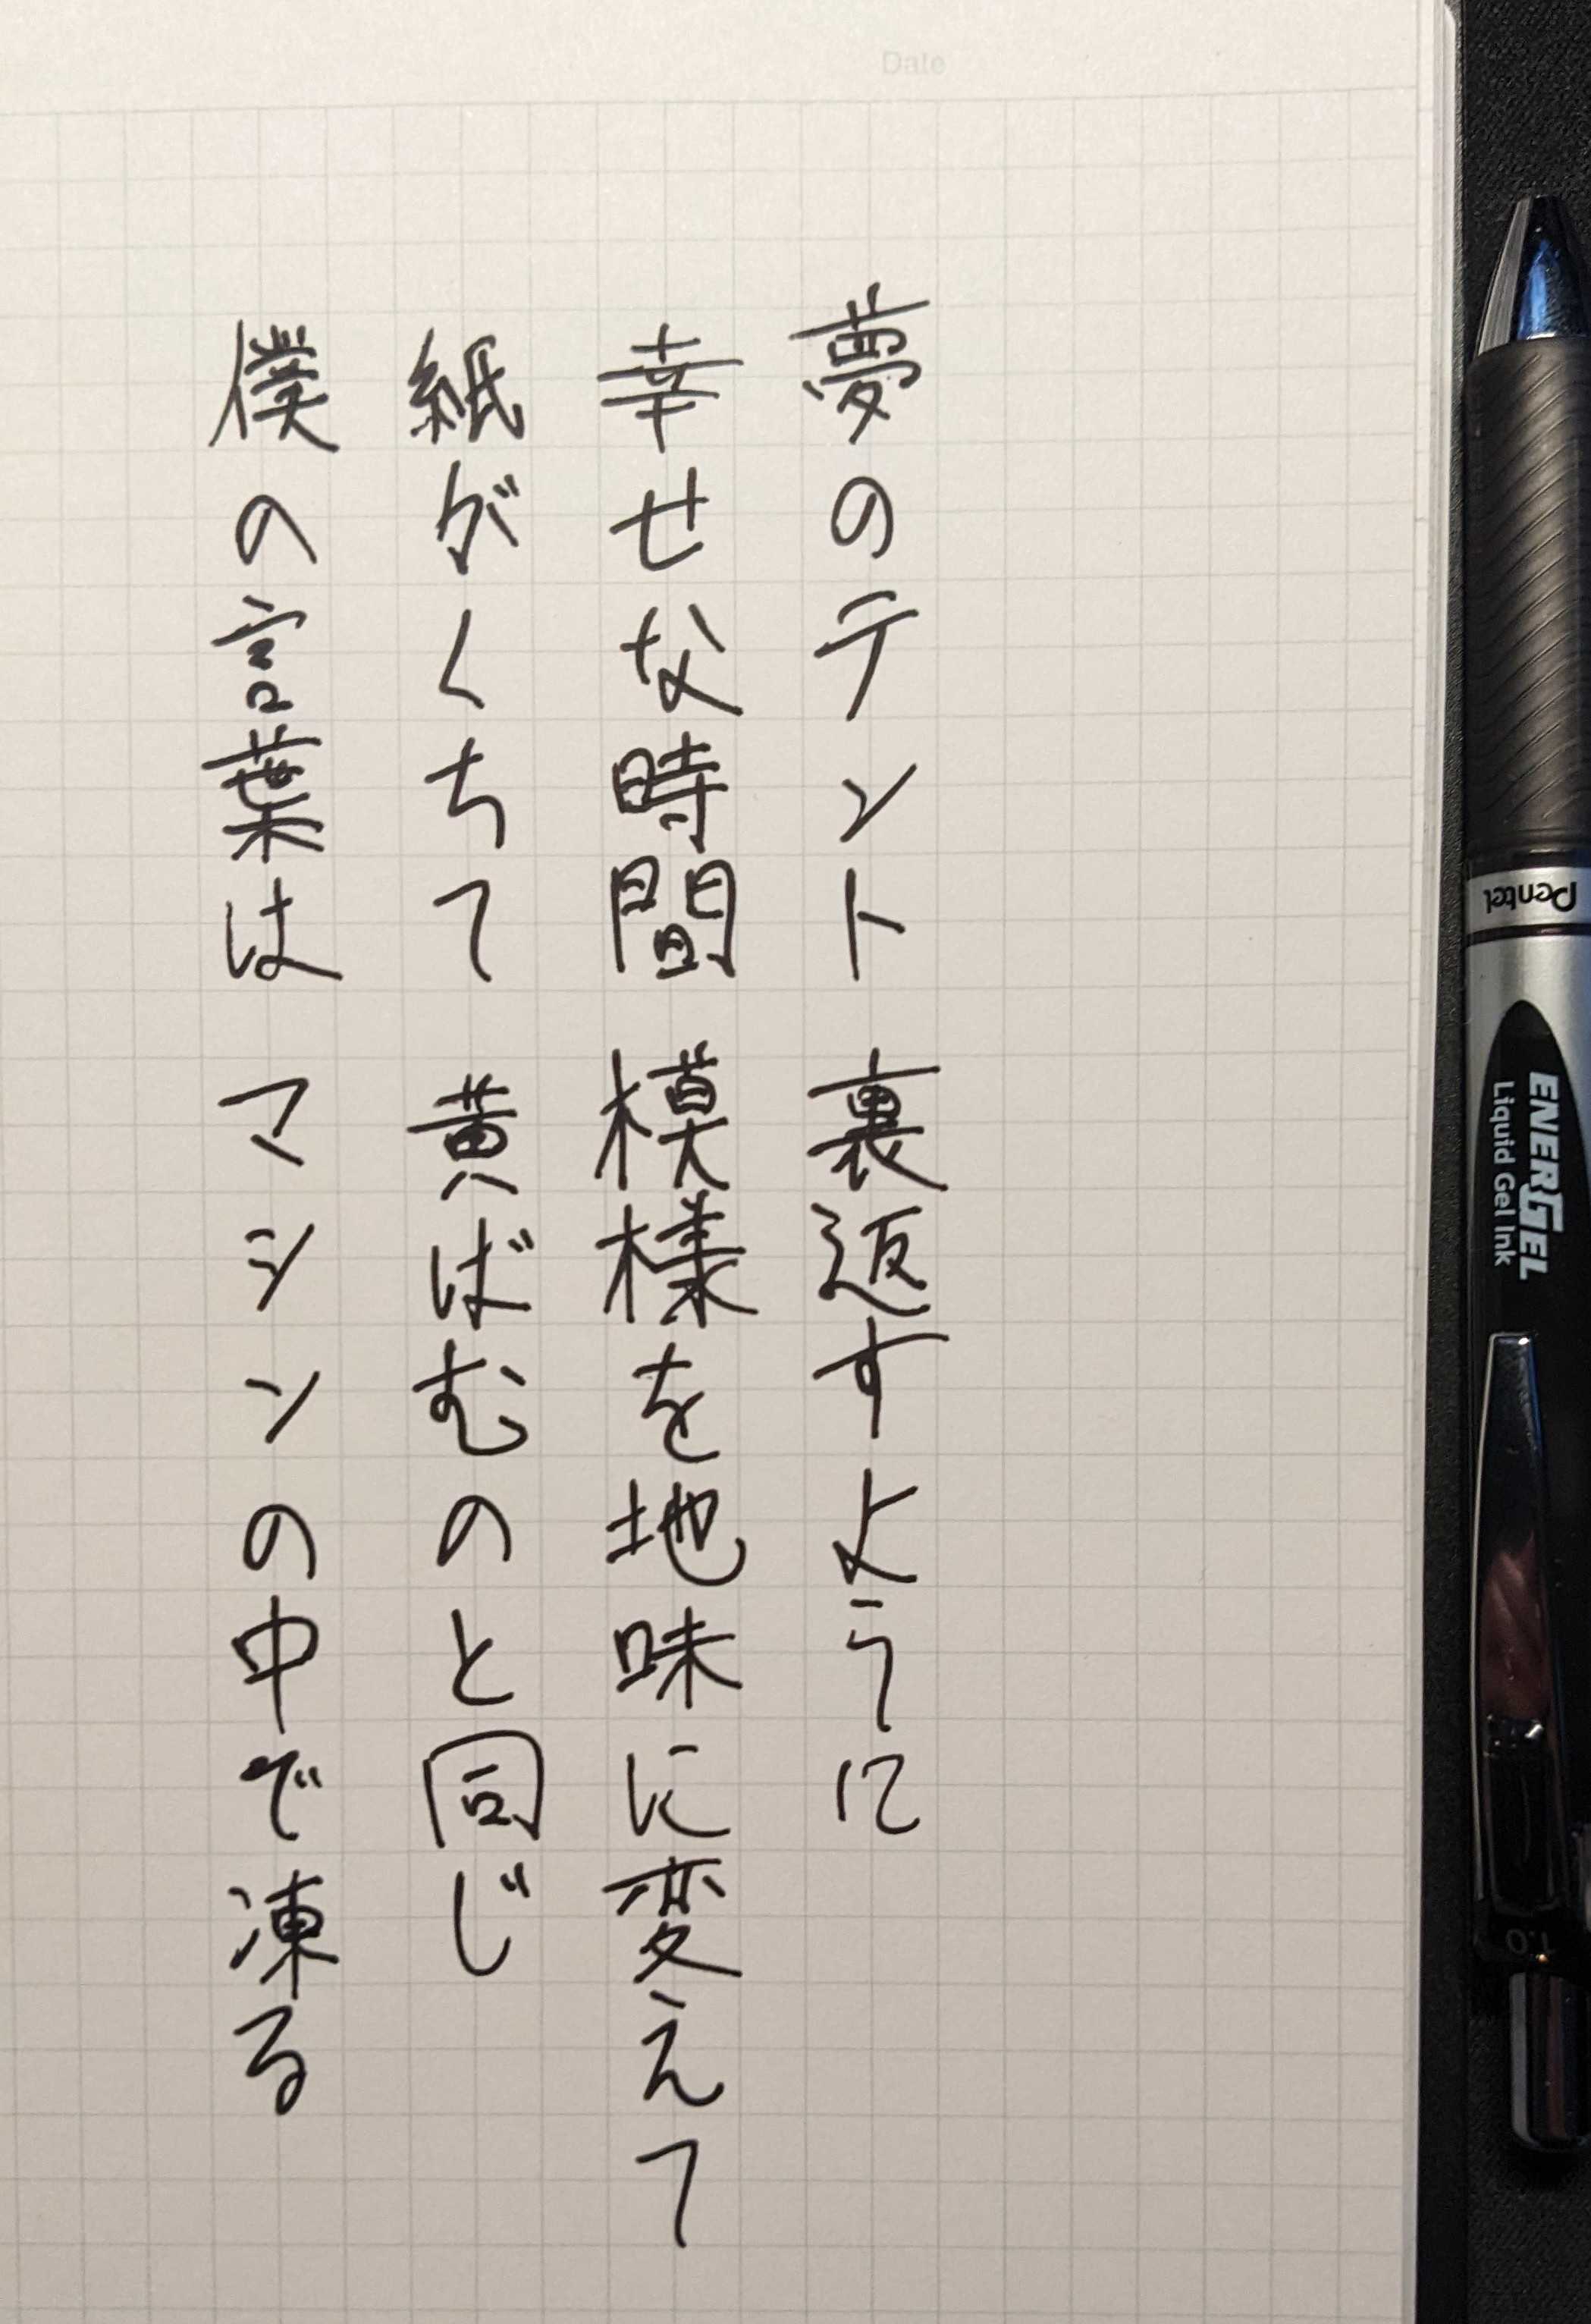 Date
夢のテント 裏返すように
幸せな時間 模様を地味に変えて
紙がくちて 黄ばむのと同じ
僕の言葉は マシンの中で凍る
Pentel
ENERGEL
Liquid Gel Ink
1.0